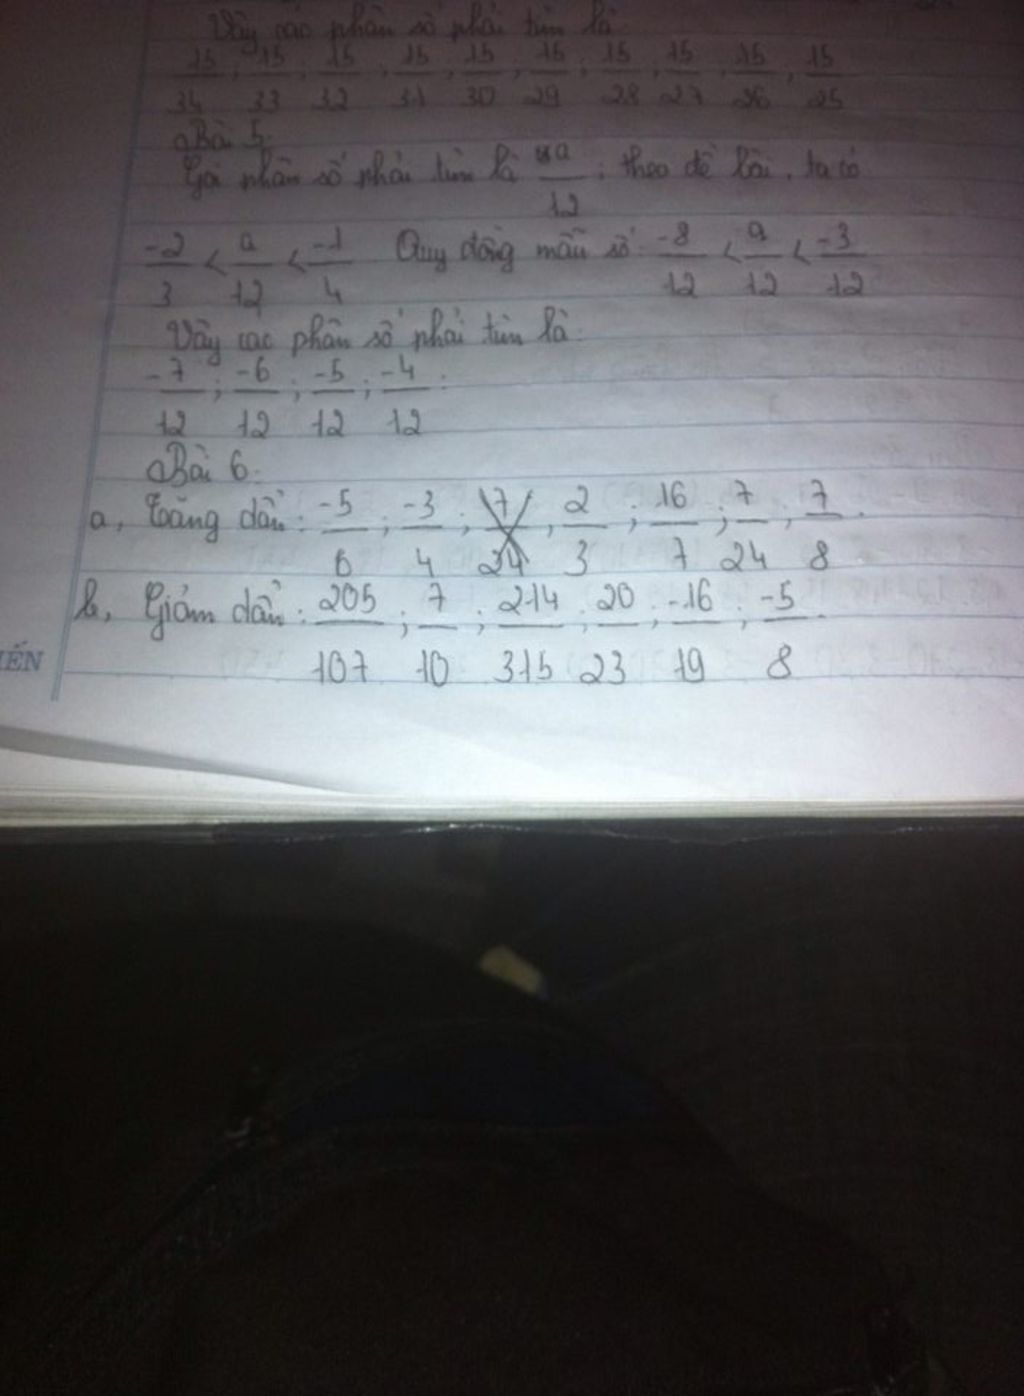 Vậy các phân số phải tìm là
15/34 ; 15/33 ; 15/32 ; 15/31 ; 15/30 ; 15/29 ; 15/28 ; 15/27 ; 15/26 ; 15/25
Bài 5.
Gọi phân số phải tìm là a/12 ; theo đề bài, ta có
-2/3 < a/12 < -1/4 Quy đồng mẫu số: -8/12 < a/12 < -3/12
Vậy các phân số phải tìm là
-7/12 ; -6/12 ; -5/12 ; -4/12.
Bài 6.
a, Tăng dần: -5/6 ; -3/4 ; 7/24 ; 2/3 ; 16/7 ; 7/24 ; 7/8.
b, Giảm dần: 205/107 ; 7/10 ; 214/315 ; 20/23 ; -16/19 ; -5/8.
IẾN